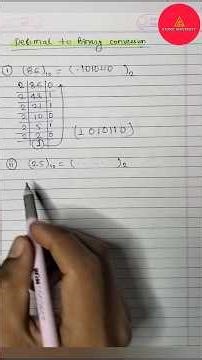 Decimal to Binary conversion
(i) (86)₁₀ = (1010110)₂
2 86 0
2 43 1
2 21 1
2 10 0
2 5 1
2 2 0
(1)
(1010110)
(ii) (25)₁₀ = ( )₂